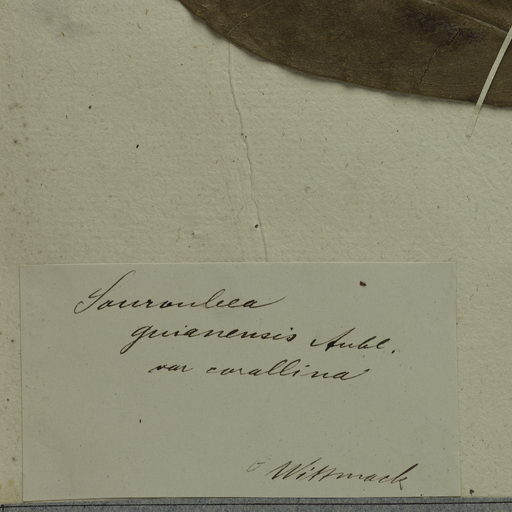 Souroubea
guianensis Aubl.
var corallina
Wittmack